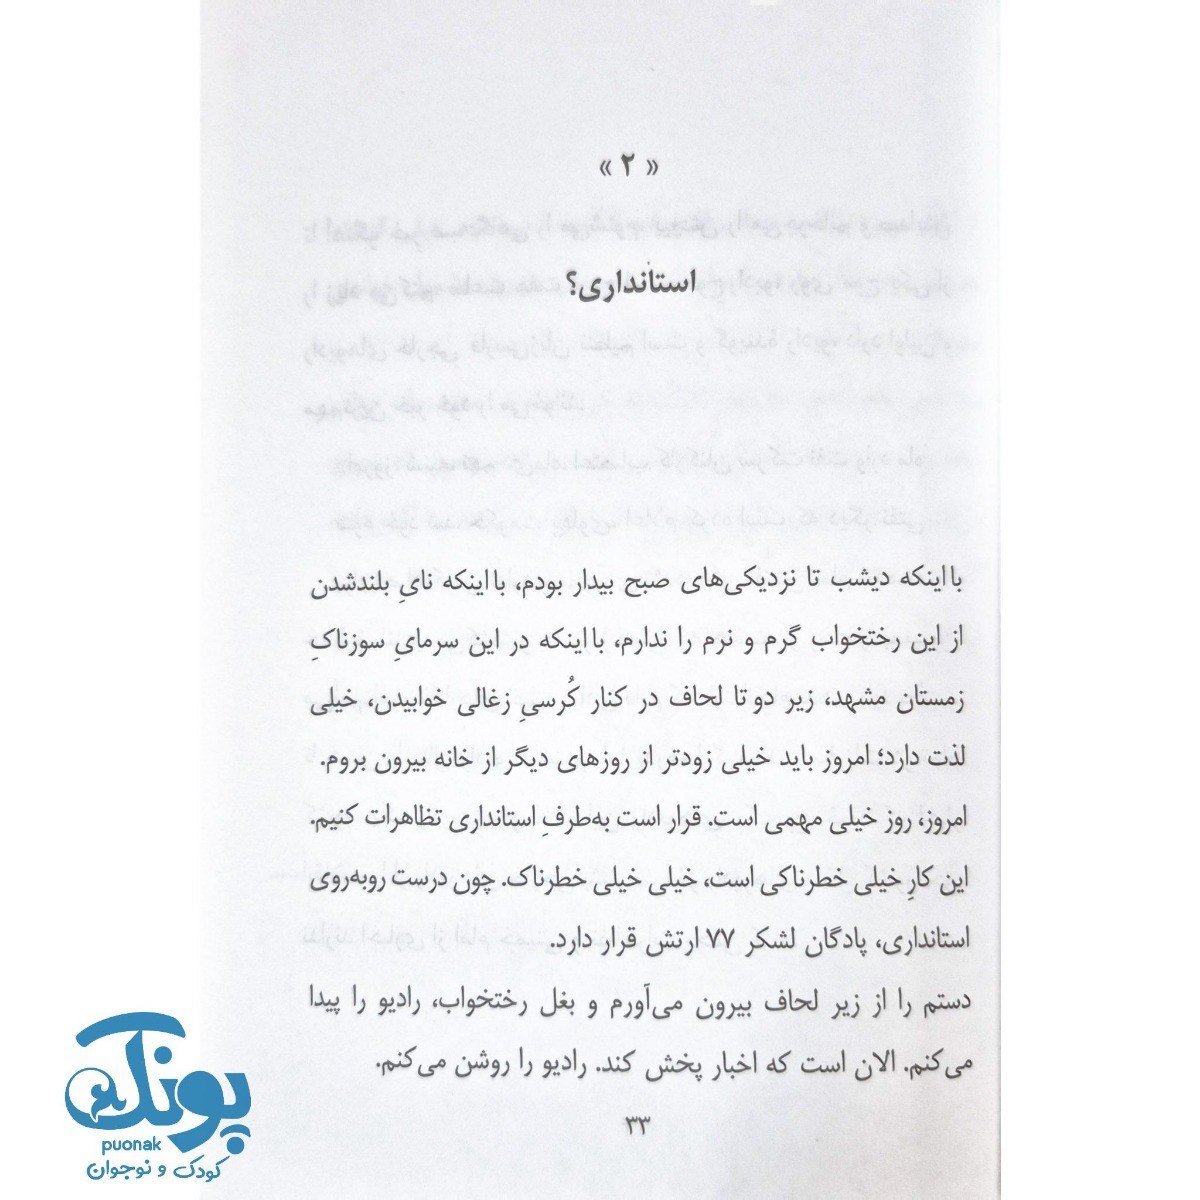 « ۲ »
استانداری؟
با اینکه دیشب تا نزدیکی‌های صبح بیدار بودم، با اینکه نایِ بلندشدن
از این رختخواب گرم و نرم را ندارم، با اینکه در این سرمایِ سوزناکِ
زمستان مشهد، زیر دو تا لحاف در کنار کُرسیِ زغالی خوابیدن، خیلی
لذت دارد؛ امروز باید خیلی زودتر از روزهای دیگر از خانه بیرون بروم.
امروز، روز خیلی مهمی است. قرار است به‌طرفِ استانداری تظاهرات کنیم.
این کارِ خیلی خطرناکی است، خیلی خیلی خطرناک. چون درست روبه‌روی
استانداری، پادگان لشکر ۷۷ ارتش قرار دارد.
دستم را از زیر لحاف بیرون می‌آورم و بغل رختخواب، رادیو را پیدا
می‌کنم. الان است که اخبار پخش کند. رادیو را روشن می‌کنم.
۳۳
پونک
puonak
کودک و نوجوان